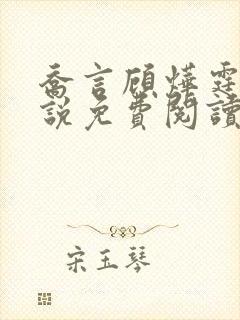 喬言顧燁霆
說免費閱讀
宋玉琴